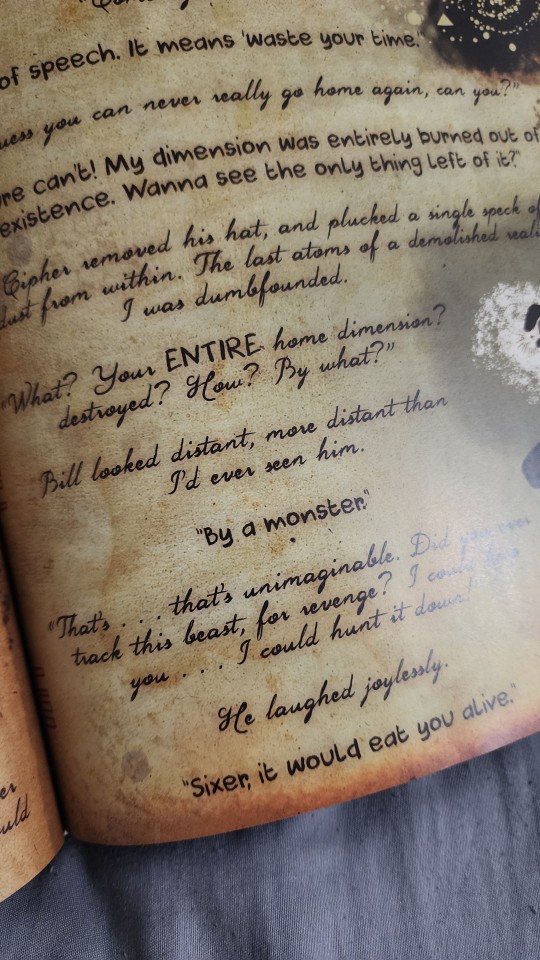 of speech. It means 'waste your time.'"
you can never really go home again, can you?"
can't! My dimension was entirely burned out of
existence. Wanna see the only thing left of it?"
Cipher removed his hat, and plucked a single speck of
dust from within. The last atoms of a demolished
I was dumbfounded.
"What? Your ENTIRE home dimension?
destroyed? How? By what?"
Bill looked distant, more distant than
I'd ever seen him.
"By a monster."
"That's . . . that's unimaginable. Did you ever
track this beast, for revenge? I could
you . . . I could hunt it down!"
He laughed joylessly.
"Sixer, it would eat you alive."